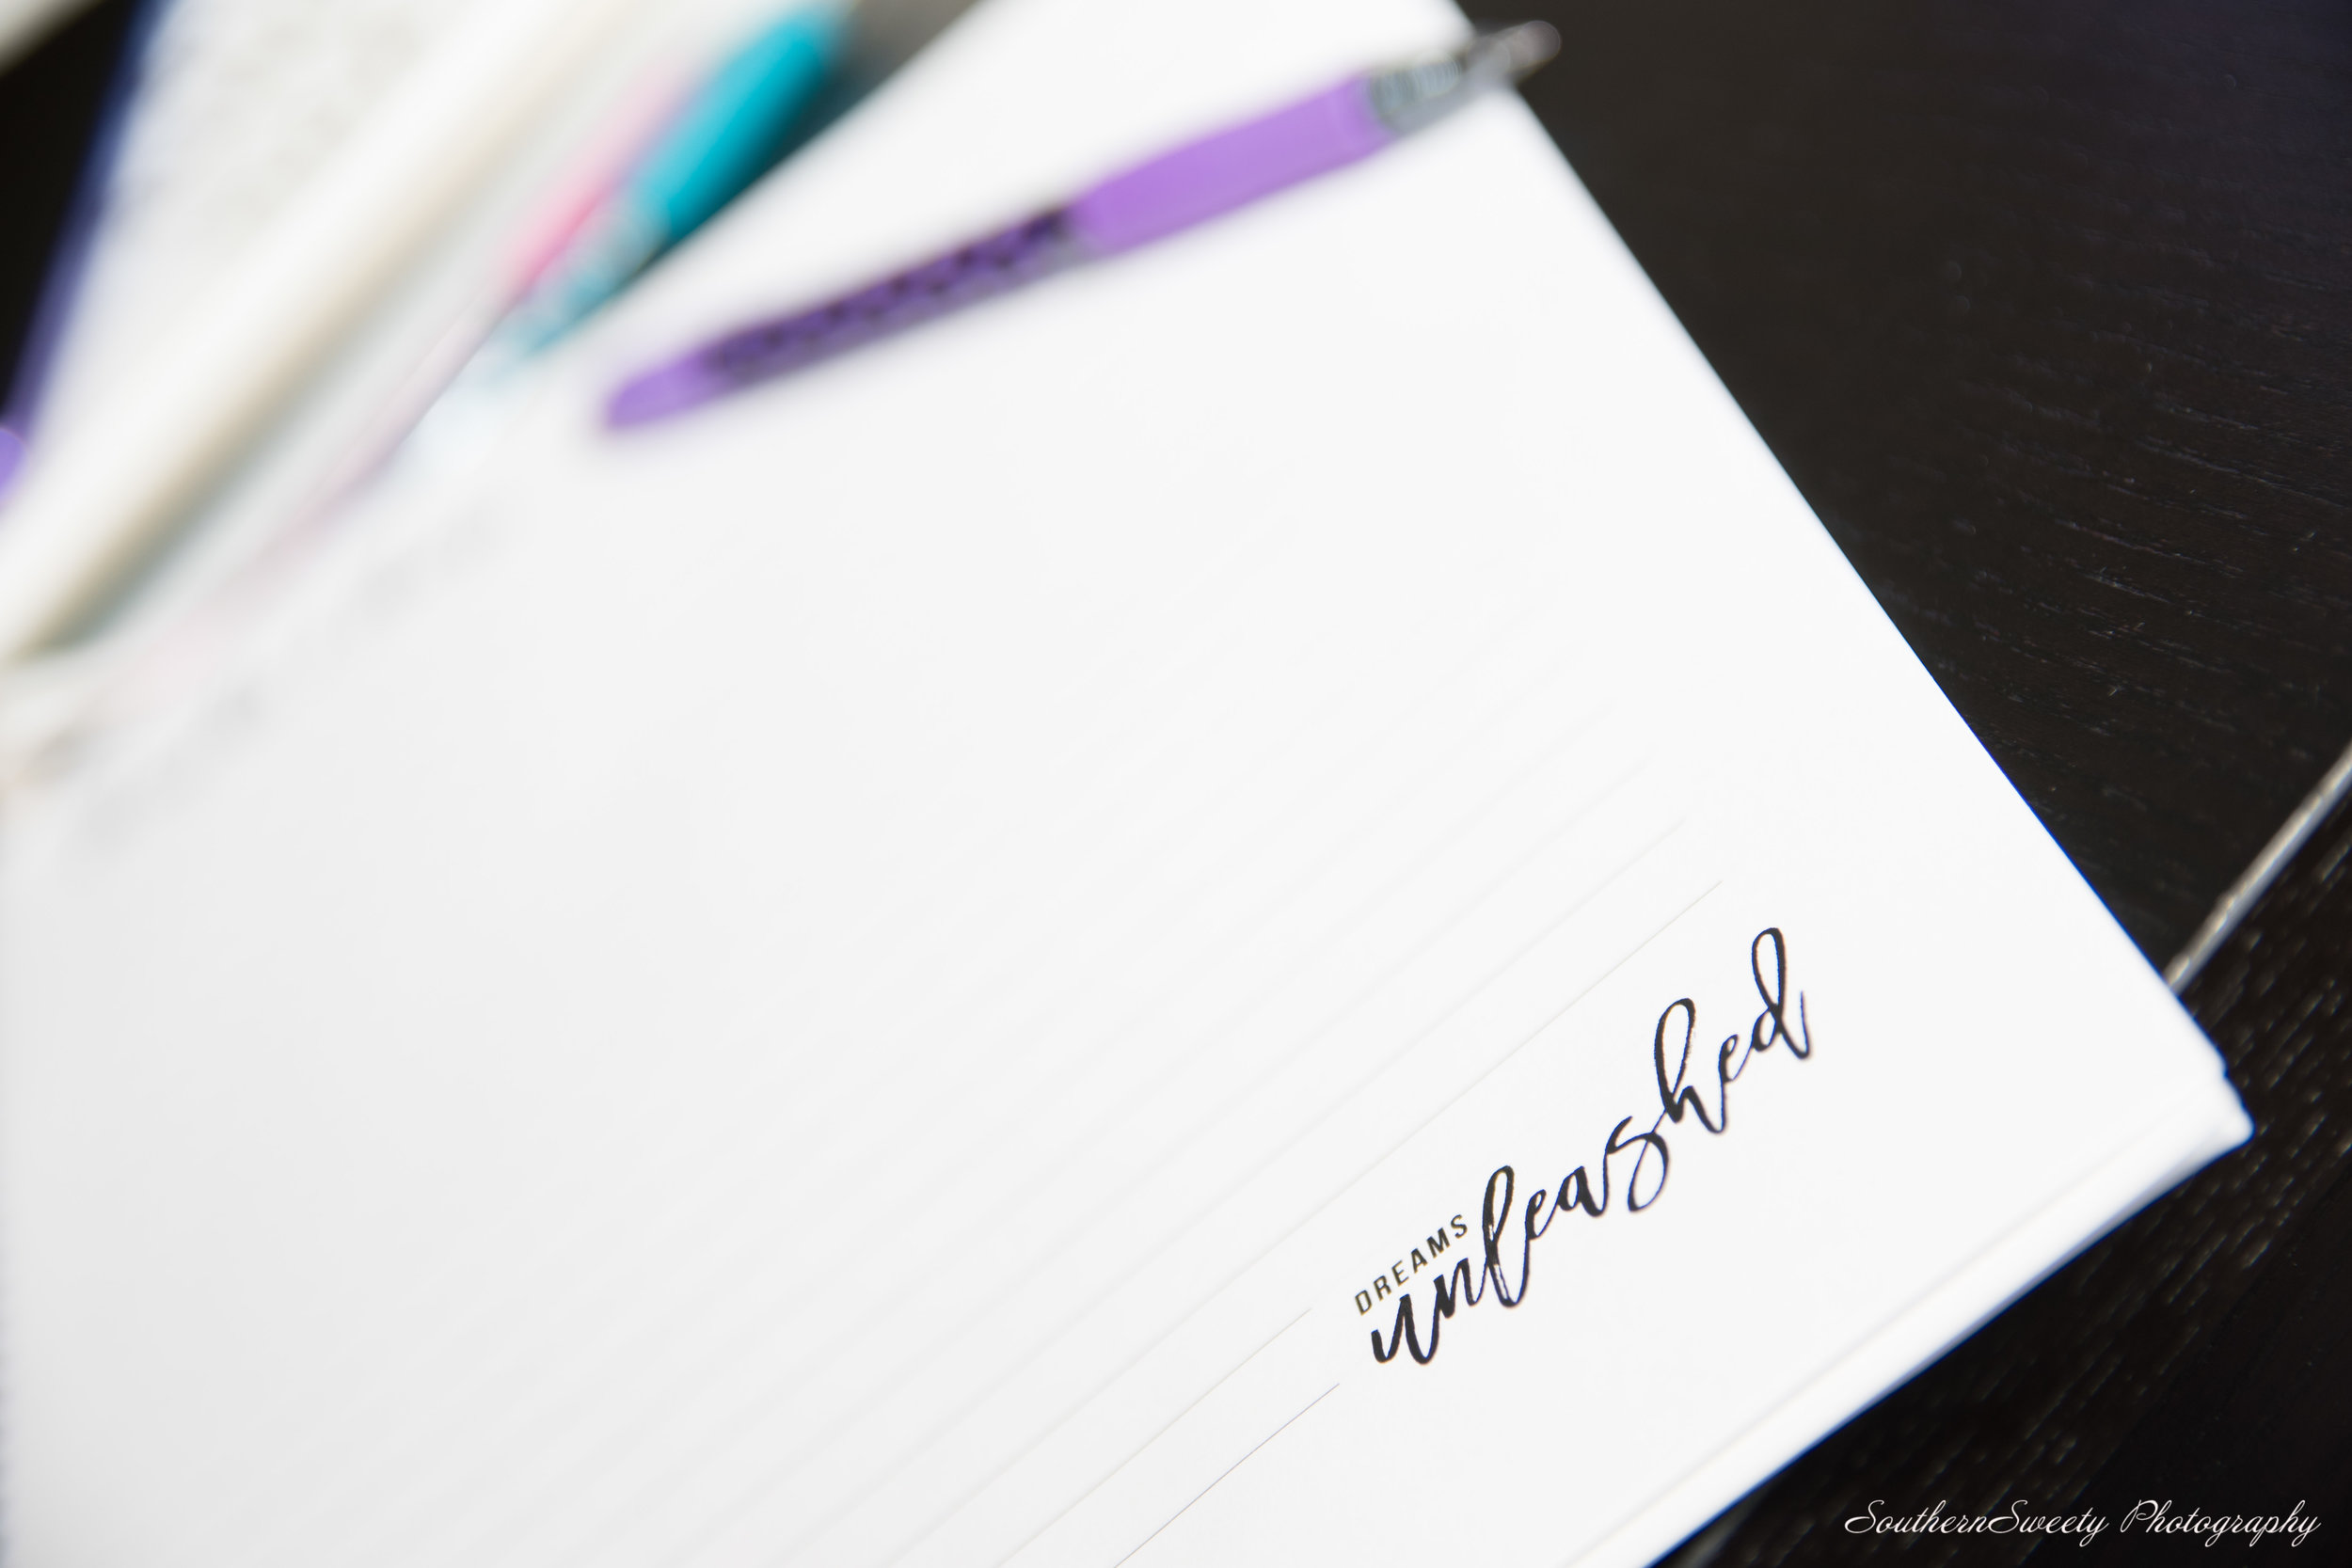 DREAMS
unleashed
SouthernSweety Photography